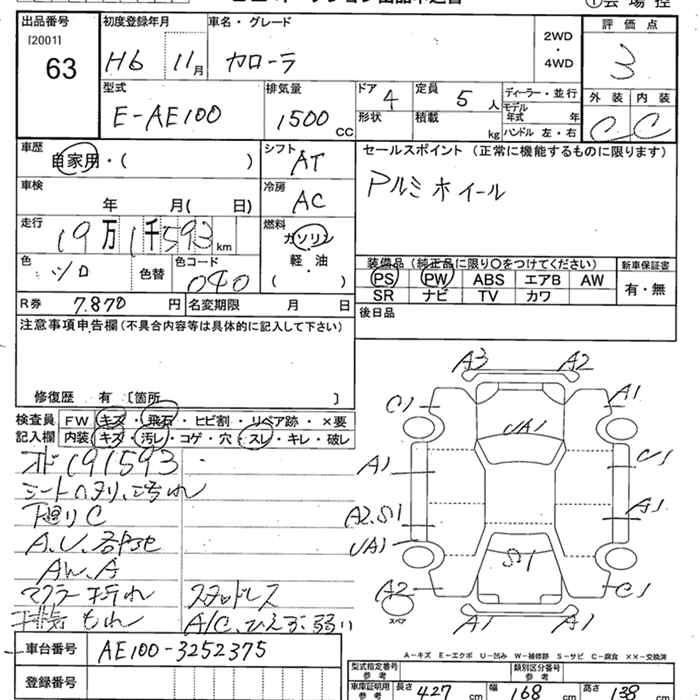 出品番号 初度登録年月 車名・グレード 評価点
[2001] 2WD
63 H6 11月 カローラ 4WD 3
型式 排気量 ドア 定員 ディーラー・並行 外装 内装
E-AE100 1500CC 4 5人 モデル年式 年 C C
形状 積載 kg ハンドル 左・右
車歴 シフト セールスポイント (正常に機能するものに限ります)
自家用・( ) AT アルミホイール
車検 冷房
年 月( 日) AC
走行 燃料
19万1千593km ガソリン
色 色コード 軽・油 装備品(純正品に限り〇をつけてください) 新車保証書
シロ 色替 040 ( ) PS PW ABS エアB AW 有・無
R券 7.870円 名変期限 月 日 SR ナビ TV カワ
注意事項申告欄(不具合内容等は具体的に記入して下さい) 後日品
修復歴 有 [箇所 ]
検査員 FW キズ・飛石・ヒビ割・リペア跡・×要
記入欄 内装 キズ・汚レ・コゲ・穴・スレ・キレ・破レ
A3 A2
C1 A1
UA1
A1 U1
A2.S1 A1
UA1
S1
A2 C1
スペア A1
オド191593
シートヘタリ、汚れ
下廻りC
A.U.各所
AW.A
マフラー 折れ スタッドレス
排気もれ A/C.ひえ 弱い
A-キズ E-エクボ U-凹み W-補修跡 S-サビ C-腐食 ××-交換済
車台番号 AE100-3252375
登録番号
型式指定番号 参考 類別区分番号 参考
車庫証明用 参考 長さ 427cm 幅 168cm 高さ 138cm